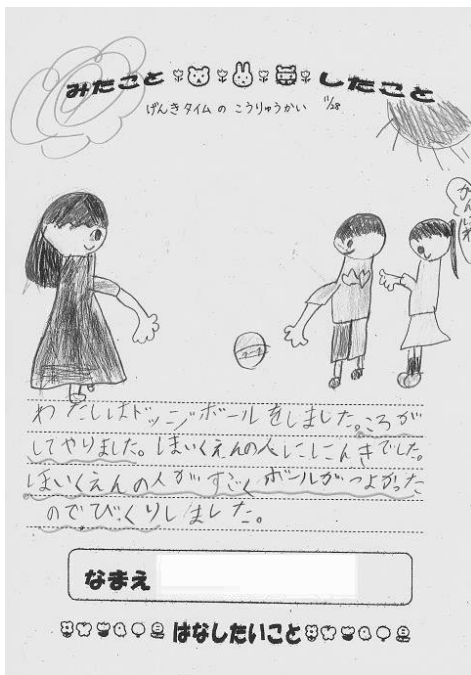 みたこと したこと
げんきタイムの こうりゅうかい 11/28
がんばれ
わたしはドッジボールをしました。ころが
してやりました。ほいくえんの人ににんきでした。
ほいくえんの人がすごくボールがつよかった
のでびっくりしました。
なまえ
はなしたいこと